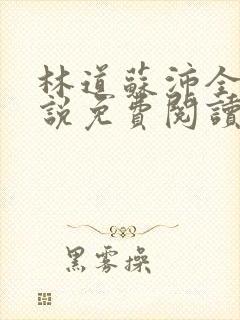 林道蘇沛全
說免費閱讀
黑霧操